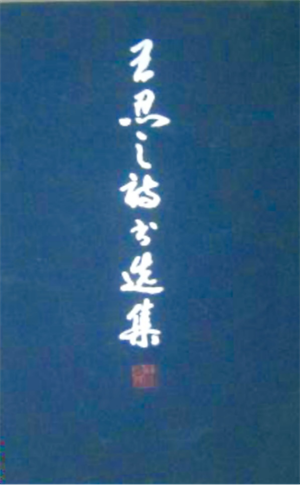 王忍之诗书选集